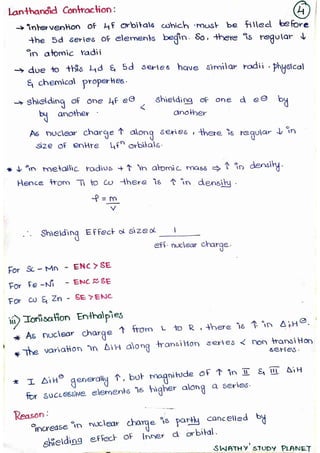 Lanthanoid Contraction:
4
→ intervention of 4f orbitals which must be filled before
the 5d series of elements begin. So, there is regular ↓
in atomic radii
→ due to this 4d & 5d series have similar radii. physical
& chemical properties.
→ shielding of one 4f e⊖ < shielding of one d e⊖ by
by another another
As nuclear charge ↑ along series, there is regular ↓ in
size of entire 4fⁿ orbitals.
* ↓ in metallic radius + ↑ in atomic mass ⇒ ↑ in density.
Hence from Ti to Cu there is ↑ in density.
ρ = m/v
∴ Shielding Effect α size α 1/eff. nuclear charge.
For Sc - Mn - ENC > SE
For Fe - Ni - ENC ≈ SE
For Cu & Zn - SE > ENC
iii) Ionisation Enthalpies
* As nuclear charge ↑ from L to R, there is ↑ in ΔiH⊖.
* The variation in ΔiH along transition series < non transition
series.
* I ΔiH⊖ generally ↑, but magnitude of ↑ in II & III ΔiH
for successive elements is higher along a series.
Reason:
increase in nuclear charge is partly cancelled by
shielding effect of inner d orbital.
SWATHY'STUDY PLANET